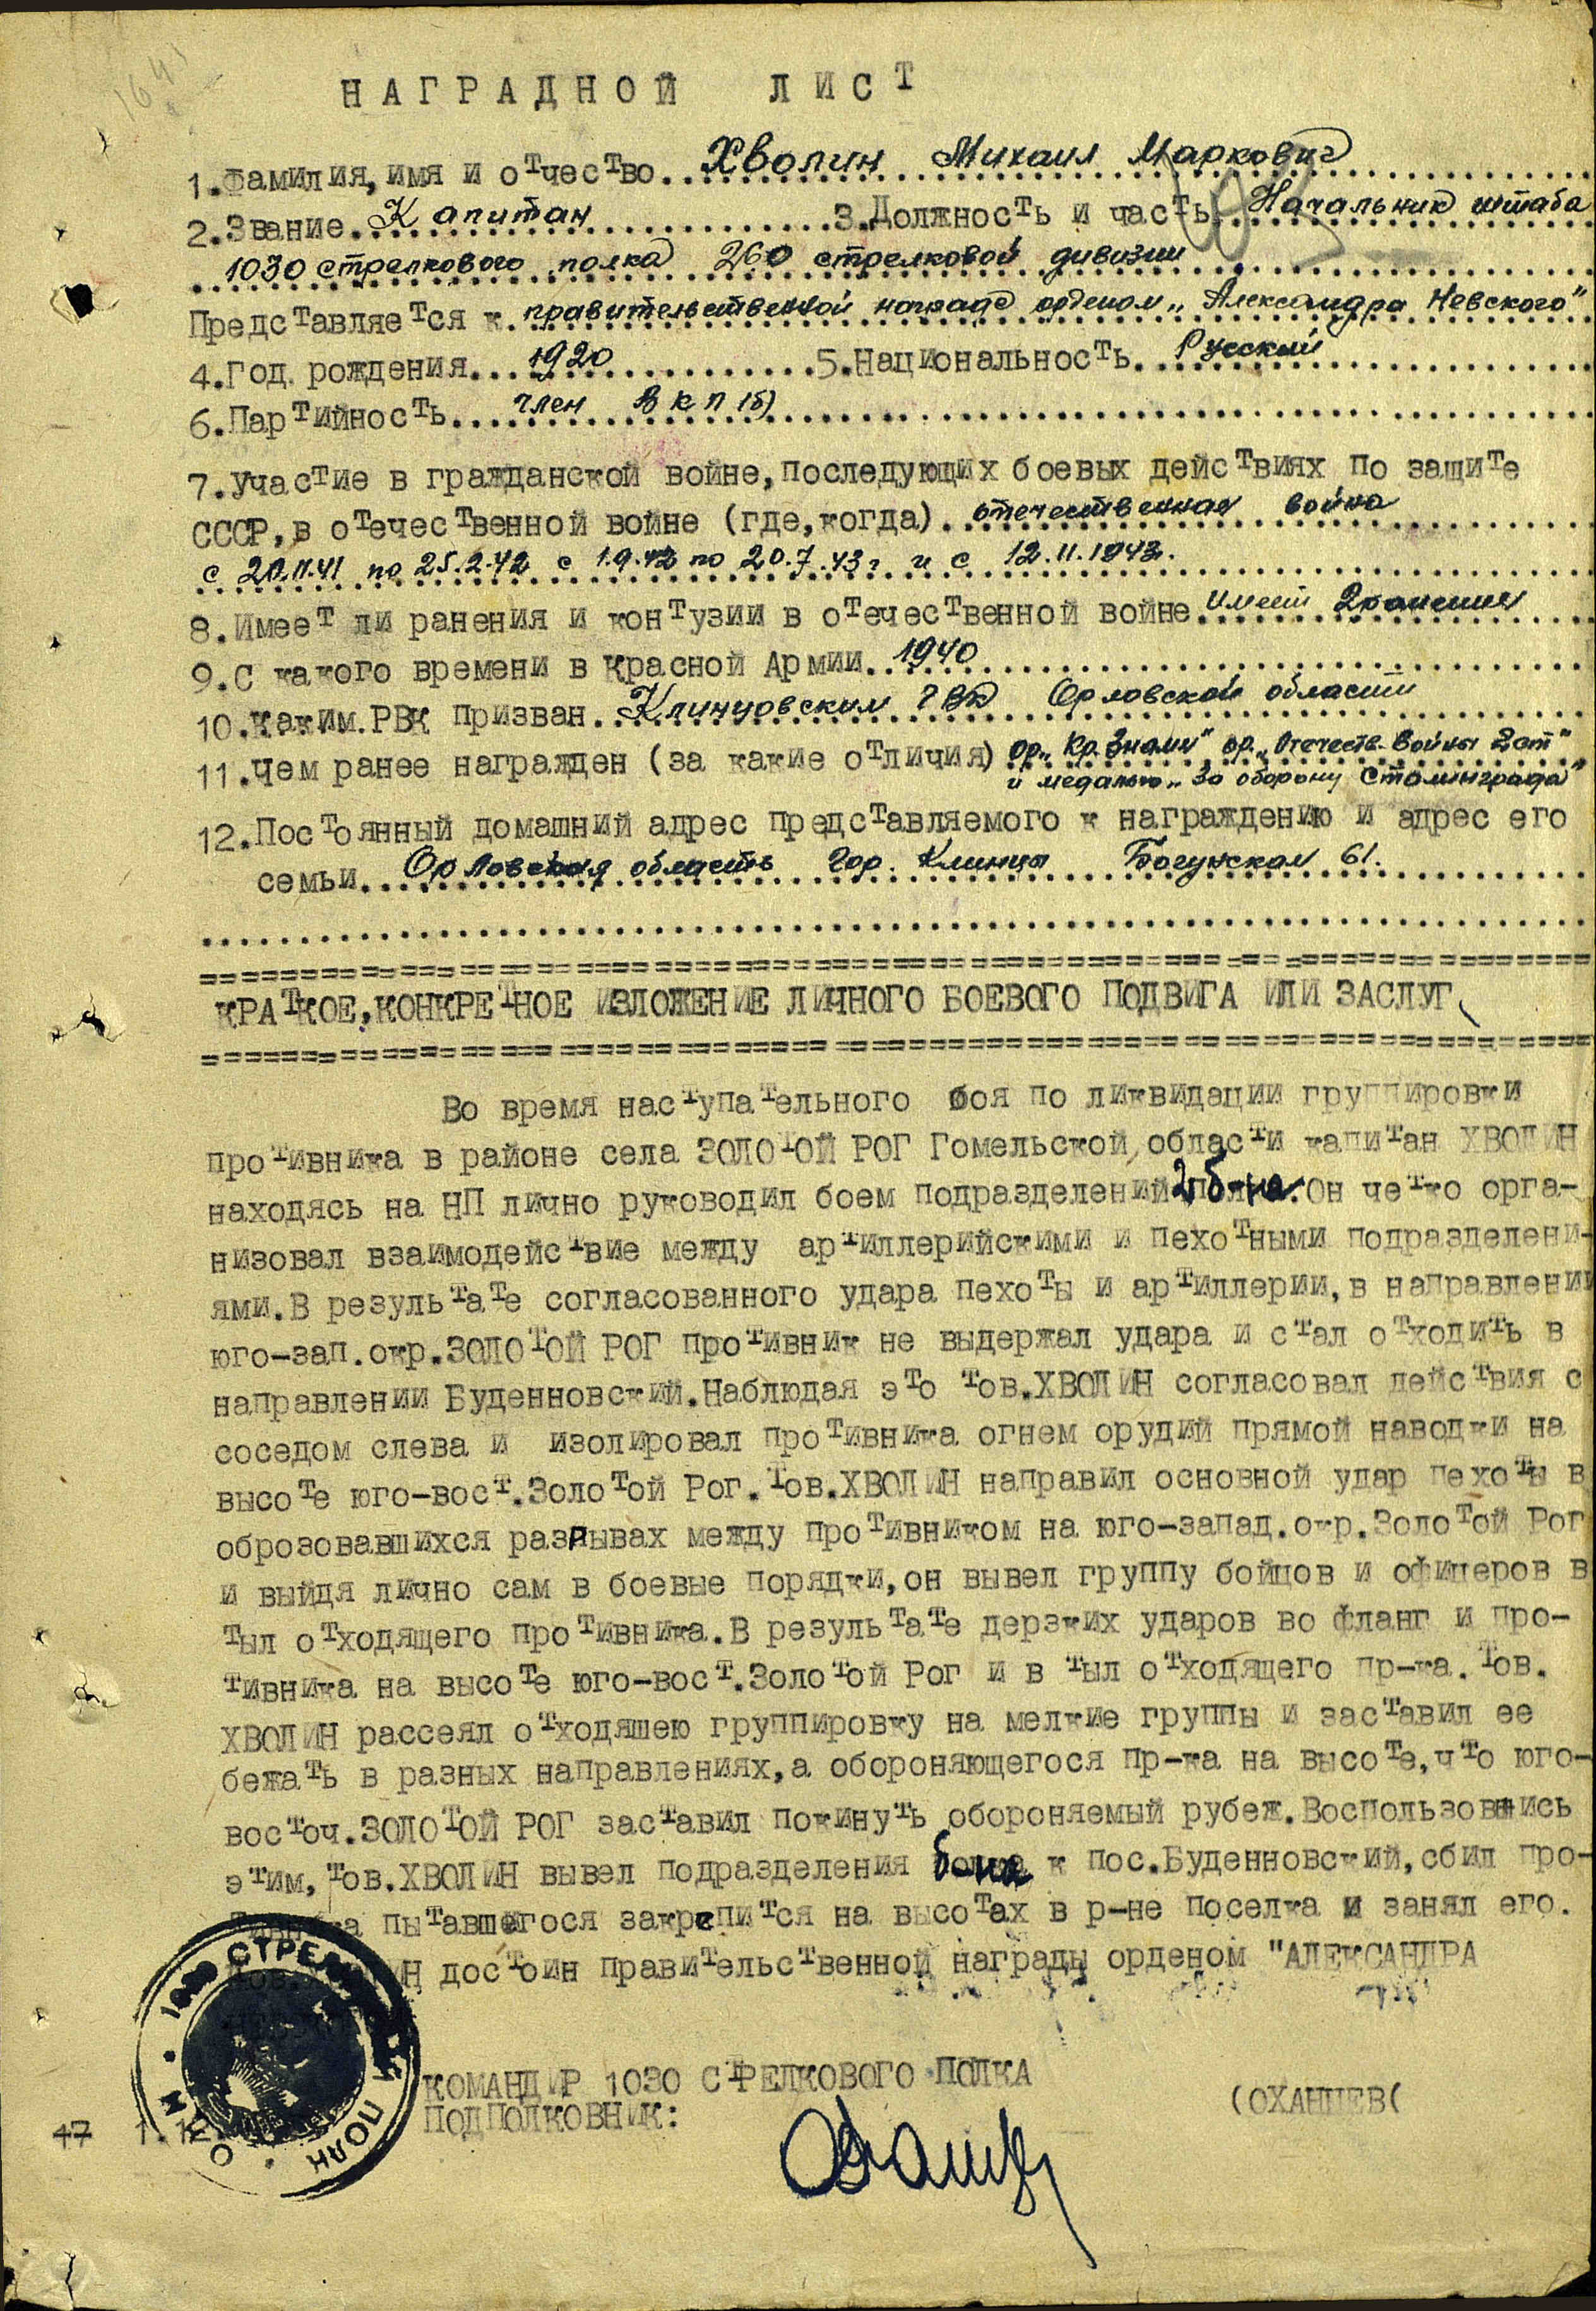 НАГРАДНОЙ ЛИСТ
1.Фамилия,имя и отчество..Хволин Михаил Маркович
2.Звание.Капитан 3.Должность и часть.Начальник штаба
1030 стрелкового полка 260 стрелковой дивизии
Представляется к.правительственной награде орденом „Александра Невского"
4.Год рождения...1920 5.Национальность.Русский
6.Партийность...член ВКП(б)
7.Участие в гражданской войне,последующих боевых действиях по защите
СССР,в отечественной войне (где,когда).отечественная война
с 20.11.41 по 25.2.42 с 1.9.42 по 20.7.43г и с 12.11.1943г.
8.Имеет ли ранения и контузии в отечественной войне.имеет 2 ранения
9.С какого времени в Красной Армии..1940
10.Каким.РВК призван.Клинцовским ГВК Орловской области
11.Чем ранее награжден (за какие отличия) ор„Кр.Знамя" ор.„Отечеств-войны 2 ст"
и медалью „За оборону Сталинграда"
12.Постоянный домашний адрес представляемого к награждению и адрес его
семьи..Орловская область гор. Клинцы Богунская 61.
КРАТКОЕ,КОНКРЕТНОЕ ИЗЛОЖЕНИЕ ЛИЧНОГО БОЕВОГО ПОДВИГА ИЛИ ЗАСЛУГ
Во время наступательного боя по ликвидации группировки
противника в районе села ЗОЛОТОЙ РОГ Гомельской области капитан ХВОЛИН
находясь на НП лично руководил боем подразделений 2 б-на.Он четко орга-
низовал взаимодействие между артиллерийскими и пехотными подразделени-
ями.В результате согласованного удара пехоты и артиллерии,в направлении
юго-зап.окр.ЗОЛОТОЙ РОГ противник не выдержал удара и стал отходить в
направлении Буденновский.Наблюдая это тов.ХВОЛИН согласовал действия с
соседом слева и изолировал противника огнем орудий прямой наводки на
высоте юго-вост.Золотой Рог.Тов.ХВОЛИН направил основной удар пехоты в
оброзовавшихся разрывах между противником на юго-запад.окр.Золотой Рог
и выйдя лично сам в боевые порядки,он вывел группу бойцов и офицеров в
тыл отходящего противника.В результате дерзких ударов во фланг и про-
тивника на высоте юго-вост.Золотой Рог и в тыл отходящего пр-ка.Тов.
ХВОЛИН рассеял отходяшею группировку на мелкие группы и заставил ее
бежать в разных направлениях,а обороняющегося пр-ка на высоте,что юго-
восточ.ЗОЛОТОЙ РОГ заставил покинуть обороняемый рубеж.Воспользовшись
этим,тов.ХВОЛИН вывел подразделения б-на к пос.Буденновский,сбил про-
тивника пытавшегося закрепится на высотах в р-не поселка и занял его.
достоин правительственной награды орденом "АЛЕКСАНДРА
1030 СТРЕЛКОВЫЙ ПОЛК
КОМАНДИР 1030 СТРЕЛКОВОГО ПОЛКА
ПОДПОЛКОВНИК: (ОХАНЦЕВ(
47